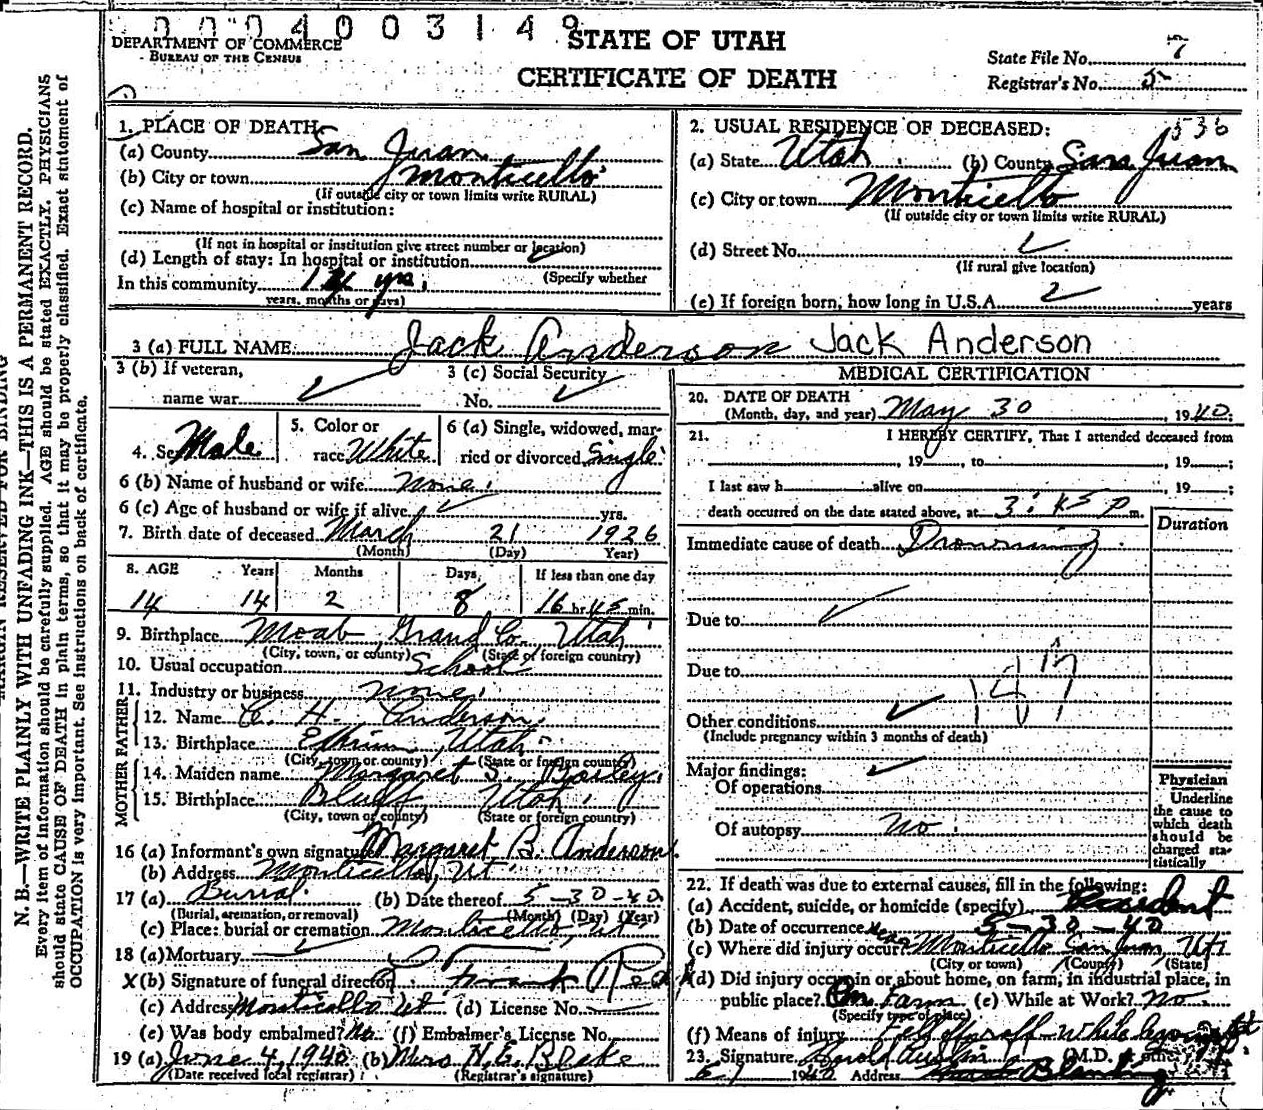 0004003149
DEPARTMENT OF COMMERCE
BUREAU OF THE CENSUS
STATE OF UTAH
CERTIFICATE OF DEATH
State File No. 7
Registrar's No. 5
1. PLACE OF DEATH
(a) County San Juan
(b) City or town Monticello
(If outside city or town limits write RURAL)
(c) Name of hospital or institution:
(If not in hospital or institution give street number or location)
(d) Length of stay: In hospital or institution
(Specify whether
In this community 14 yrs.
years, months or days)
2. USUAL RESIDENCE OF DECEASED: 536
(a) State Utah (b) County San Juan
(c) City or town Monticello
(If outside city or town limits write RURAL)
(d) Street No.
(If rural give location)
(e) If foreign born, how long in U.S.A. years
3 (a) FULL NAME Jack Anderson Jack Anderson
3 (b) If veteran,
name war
3 (c) Social Security
No.
4. Sex Male
5. Color or
race White
6 (a) Single, widowed, mar-
ried or divorced Single
6 (b) Name of husband or wife None
6 (c) Age of husband or wife if alive yrs.
7. Birth date of deceased March 21 1926
(Month) (Day) Year)
8. AGE Years Months Days If less than one day
14 14 2 8 16 hr. 45 min.
9. Birthplace Moab Grand Co. Utah
(City, town, or county) (State of foreign country)
10. Usual occupation School
11. Industry or business none
FATHER
12. Name H. Anderson
13. Birthplace Utah
(City, town or county) (State or foreign country)
MOTHER
14. Maiden name Margaret S. Bailey
15. Birthplace Bluff Utah
(City, town or county) (State or foreign country)
16 (a) Informant's own signature Margaret B. Anderson
(b) Address Monticello, Ut
17 (a) Burial (b) Date thereof 5-30-40
(Burial, cremation, or removal) (Month) (Day) (Year)
(c) Place: burial or cremation Monticello, Ut
18 (a) Mortuary
X(b) Signature of funeral director
(c) Address Monticello Ut (d) License No.
(e) Was body embalmed? No (f) Embalmer's License No.
19 (a) June 4, 1940 (b) Mrs N. E. Blake
(Date received local registrar) (Registrar's signature)
MEDICAL CERTIFICATION
20. DATE OF DEATH
(Month, day, and year) May 30 1940.
21. I HEREBY CERTIFY, That I attended deceased from
, 19 , to , 19 ;
I last saw h alive on , 19 ;
death occurred on the date stated above, at 3:45 P m.
Duration
Immediate cause of death Drowning
Due to
Due to
147
Other conditions
(Include pregnancy within 3 months of death)
Major findings:
Of operations
Of autopsy no.
Physician
Underline
the cause to
which death
should be
charged sta-
tistically
22. If death was due to external causes, fill in the following:
(a) Accident, suicide, or homicide (specify) Accident
(b) Date of occurrence 5-30-40
(c) Where did injury occur? Near Monticello San Juan Ut.
(City or town) (County) (State)
(d) Did injury occur in or about home, on farm, in industrial place, in
public place? On Farm (e) While at Work? No
(Specify type of place)
(f) Means of injury fell off raft while
23. Signature (M.D. or other)
6/1 1940 Address Blanding
MARGIN RESERVED FOR BINDING
N. B.—WRITE PLAINLY WITH UNFADING INK—THIS IS A PERMANENT RECORD.
Every item of information should be carefully supplied. AGE should be stated EXACTLY. PHYSICIANS
should state CAUSE OF DEATH in plain terms, so that it may be properly classified. Exact statement of
OCCUPATION is very important. See instructions on back of certificate.